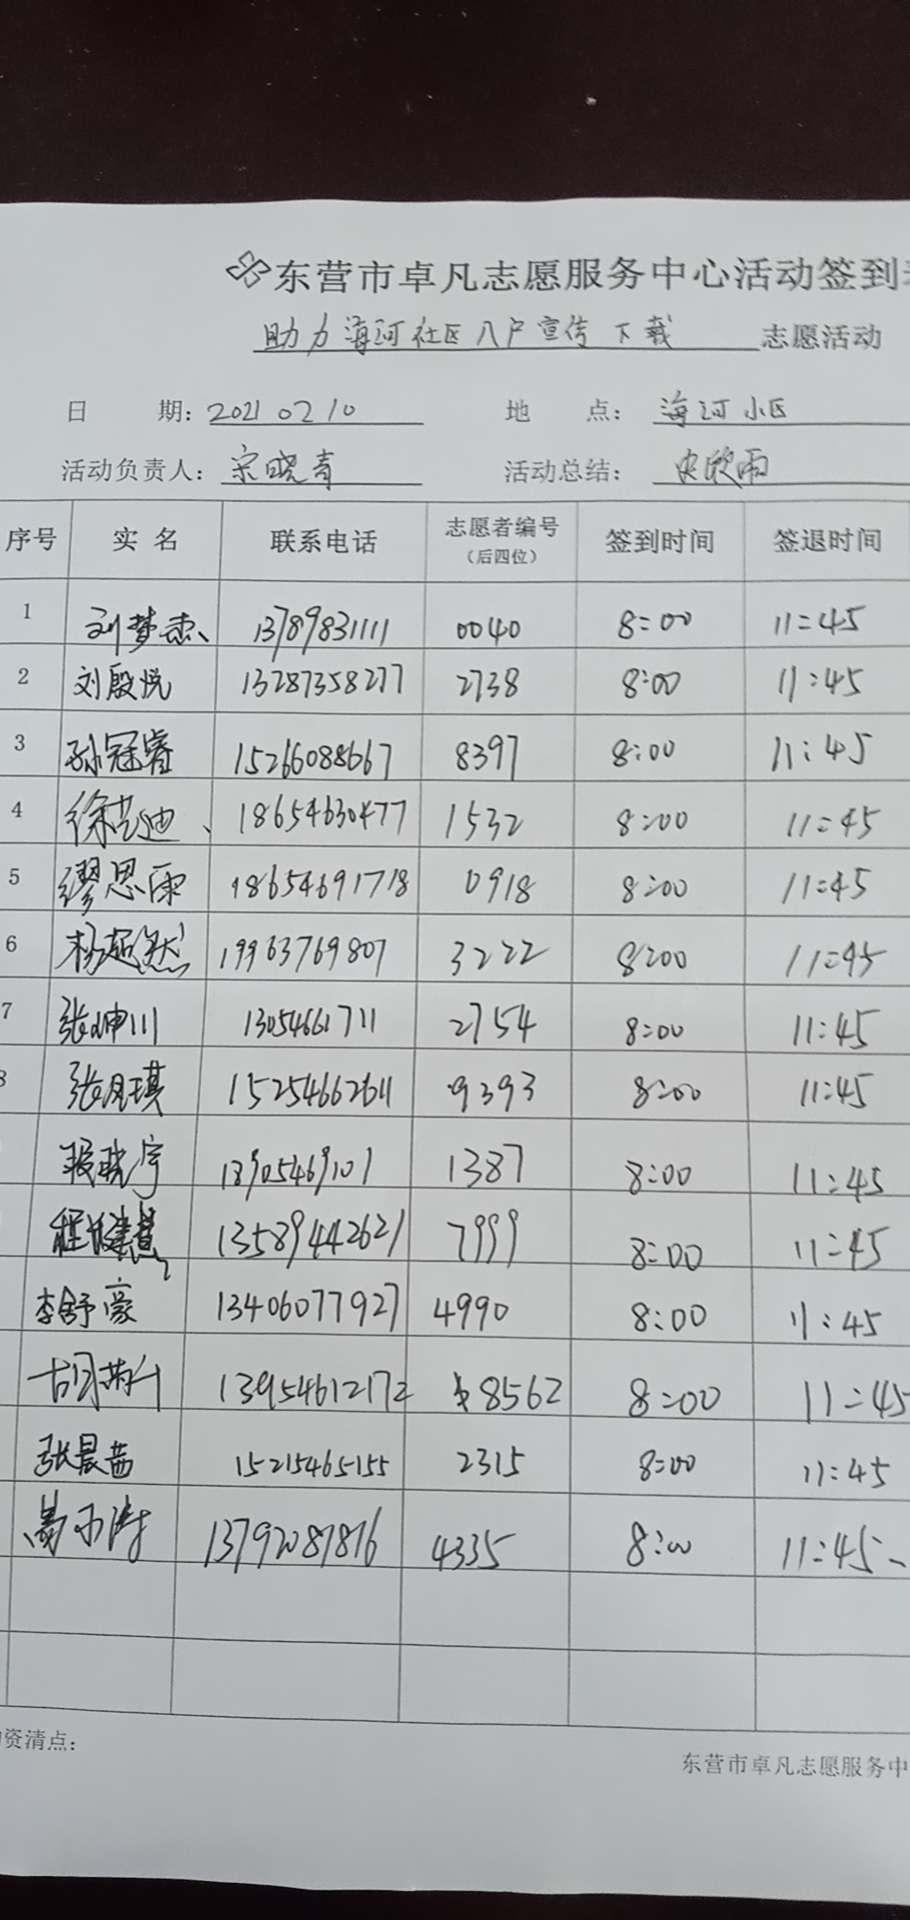 东营市卓凡志愿服务中心活动签到
助力海河社区入户宣传下载 志愿活动
日 期: 2021 02 10 地 点: 海河小区
活动负责人: 宗晓青 活动总结: 史欣雨
序号 实名 联系电话 志愿者编号(后四位) 签到时间 签退时间
1 刘梦杰 13789831111 0040 8:00 11:45
2 刘殷悦 13287358277 2738 8:00 11:45
3 孙冠睿 15266088667 8397 8:00 11:45
4 徐艺迪 18654630477 1532 8:00 11:45
5 缪思雨 18654691718 0918 8:00 11:45
6 杨超然 19963769807 3222 8:00 11:45
7 张坤川 13054661711 2754 8:00 11:45
8 张月琪 15254662611 9393 8:00 11:45
18905469101 1387 8:00 11:45
13589442621 7999 8:00 11:45
李舒豪 13406077927 4990 8:00 11:45
13954612172 8562 8:00 11:45
张晨茜 15215465155 2315 8:00 11:45
13792087816 4335 8:00 11:45
资清点:
东营市卓凡志愿服务中